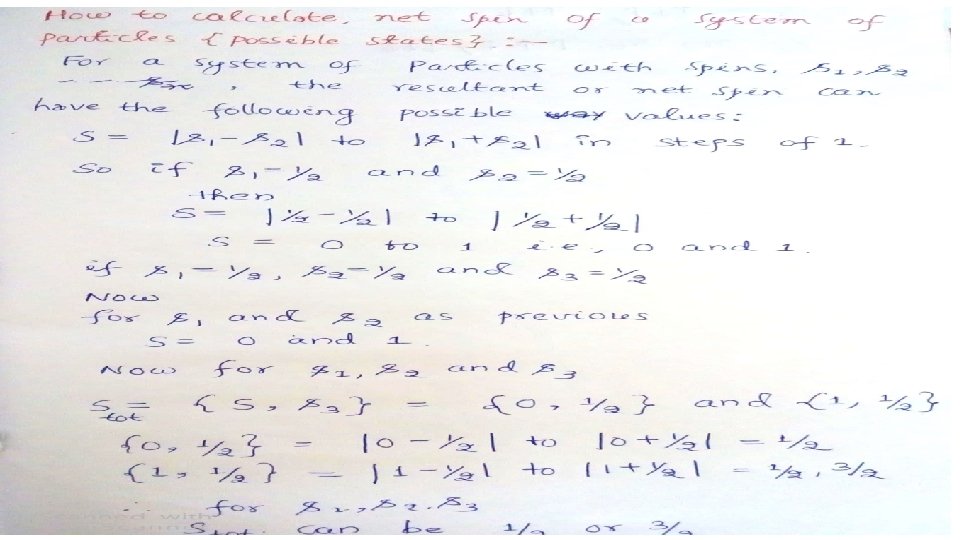 How to calculate, net spin of a system of
particles { possible states} :—
For a system of particles with spins, s1, s2
- - - - - sn , the resultant or net spin can
have the following possible values:
S = |s1 - s2| to |s1 + s2| in steps of 1.
So if s1 - 1/2 and s2 = 1/2
then
S = |1/2 - 1/2| to |1/2 + 1/2|
S = 0 to 1 i.e., 0 and 1.
if s1 - 1/2, s2 - 1/2 and s3 = 1/2
Now
for s1 and s2 as previous
S = 0 and 1.
Now for s1, s2 and s3
Stot = {S, s3} = {0, 1/2} and {1, 1/2}
{0, 1/2} = |0 - 1/2| to |0 + 1/2| = 1/2
{1, 1/2} = |1 - 1/2| to |1 + 1/2| = 1/2, 3/2
∴ for s1, s2, s3
Stot can be 1/2 or 3/2